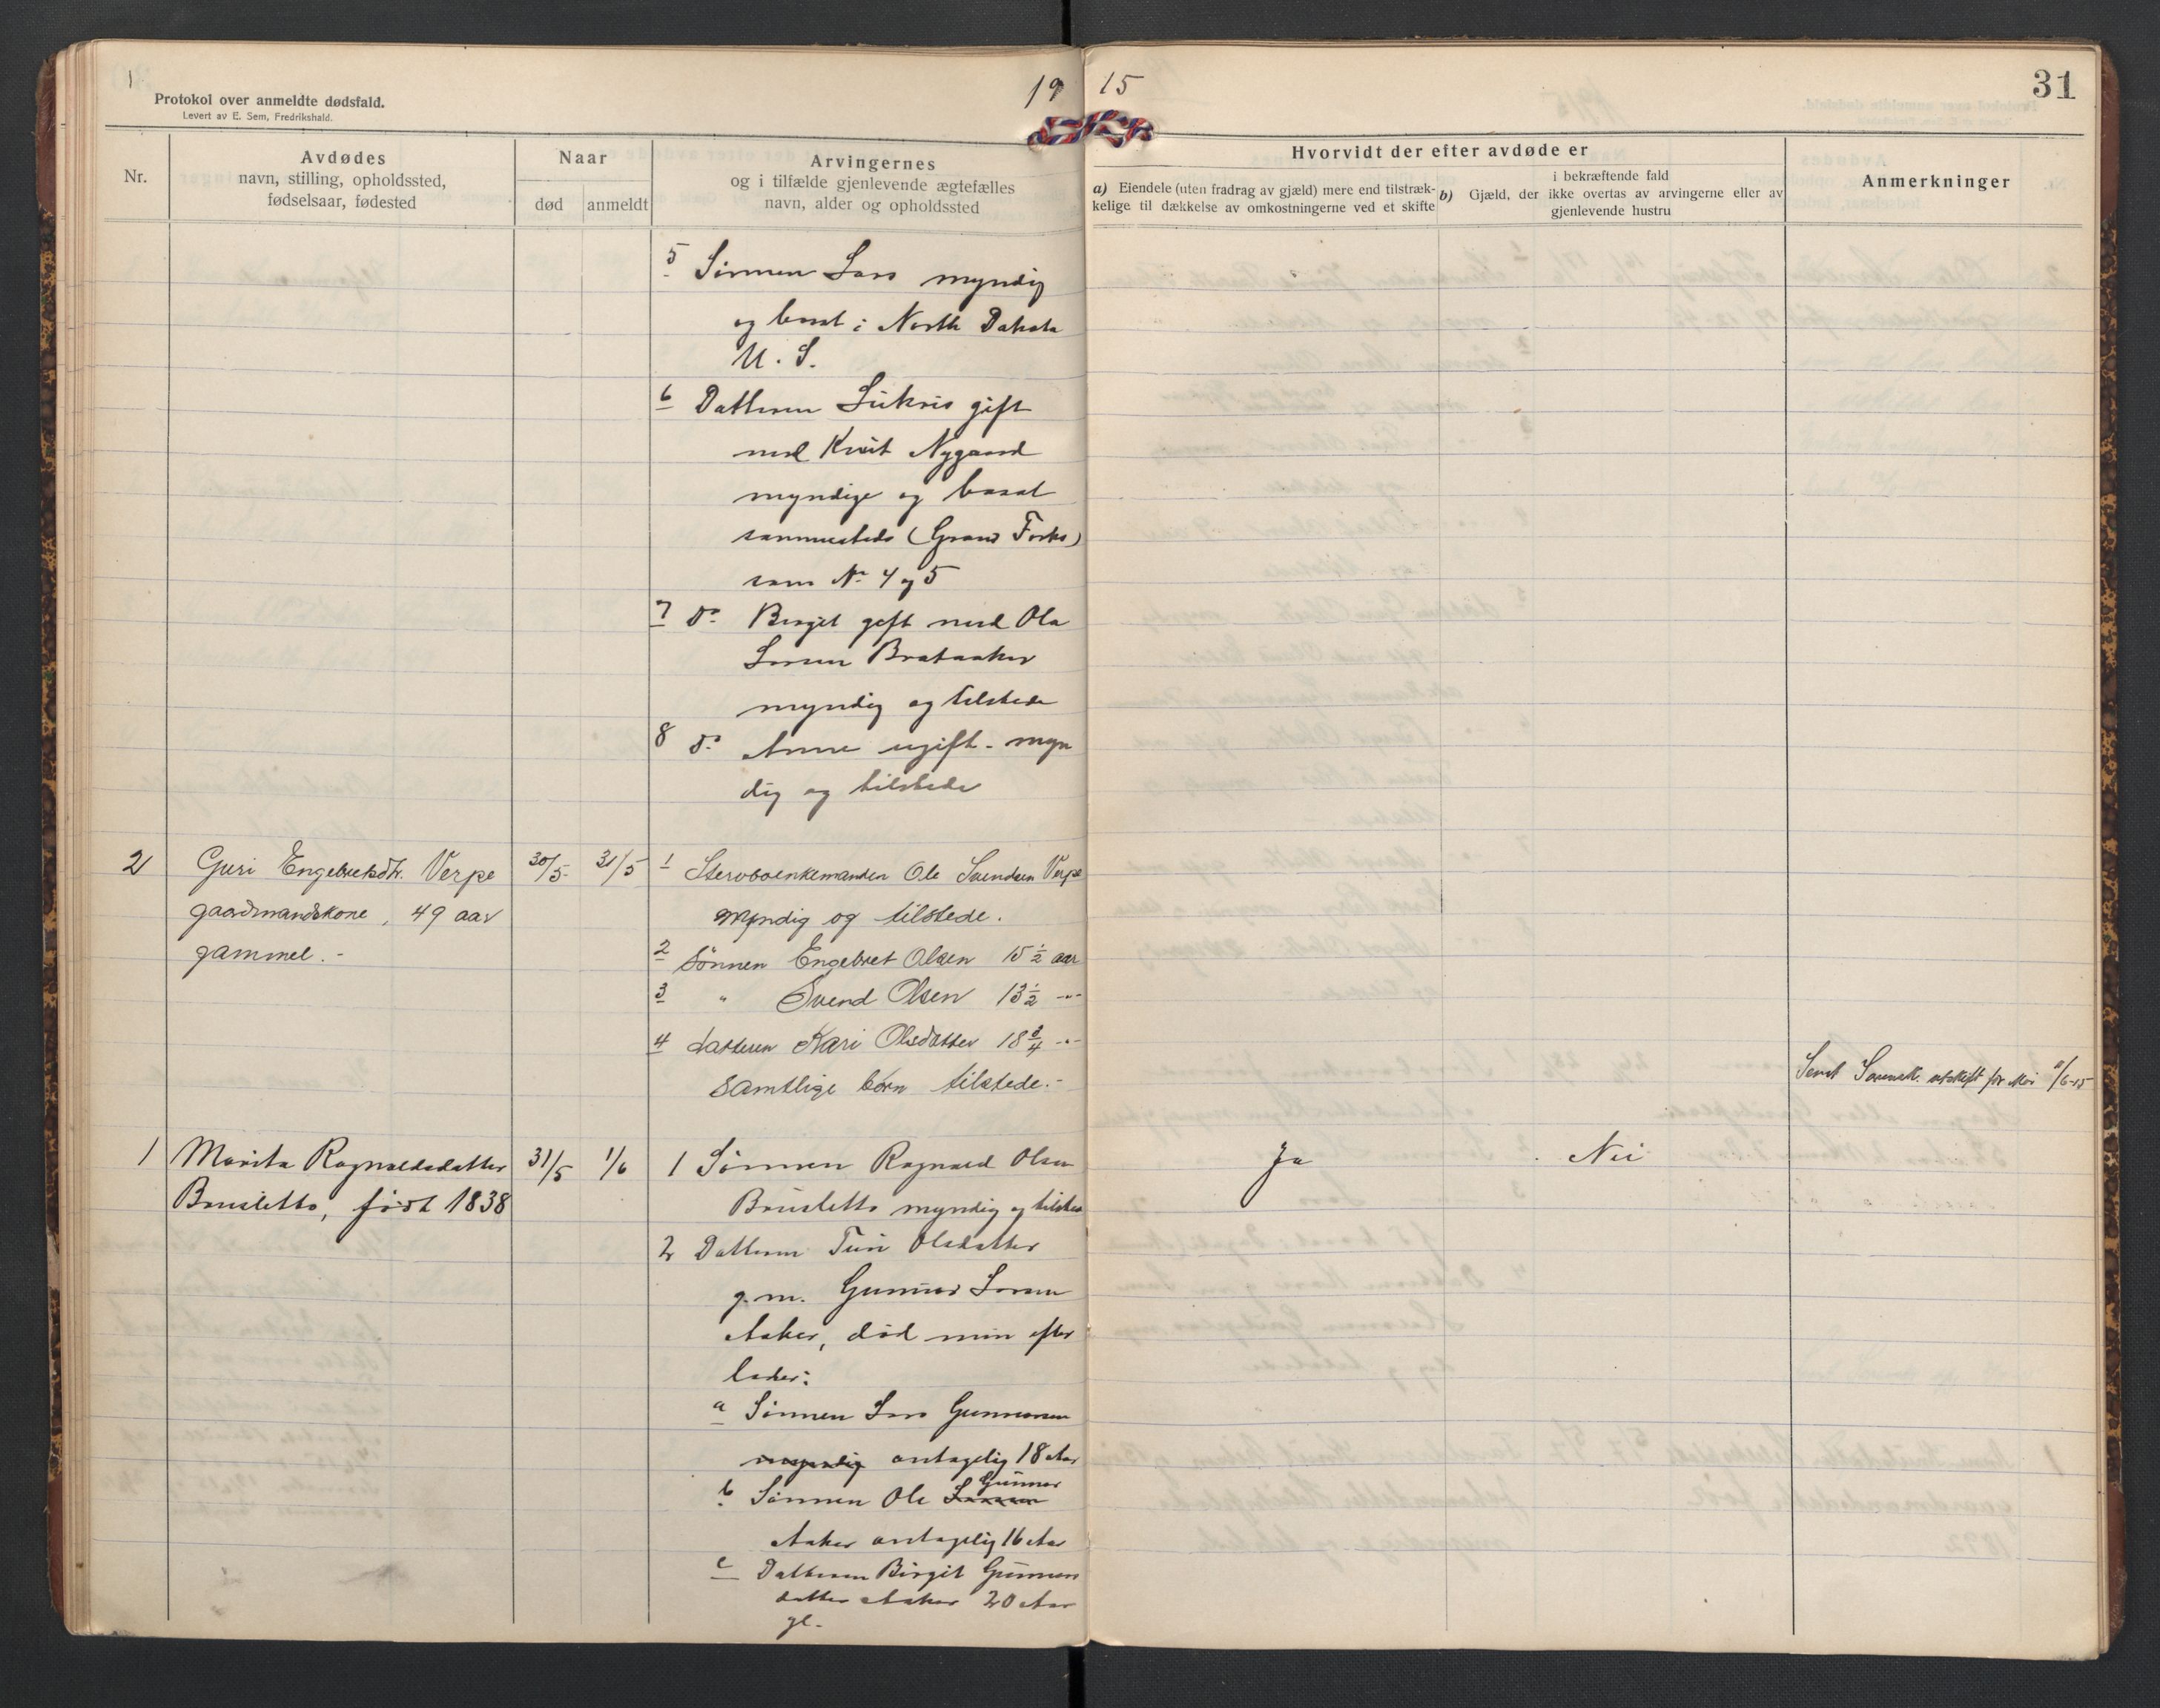 1
19 15
31
Protokol over anmeldte dødsfald.
Levert av E. Sem, Fredrikshald.
Nr.
Avdødes
navn, stilling, opholdssted,
fødselsaar, fødested
Naar
død
anmeldt
Arvingernes
og i tilfælde gjenlevende ægtefælles
navn, alder og opholdssted
Hvorvidt der efter avdøde er
a) Eiendele (uten fradrag av gjæld) mere end tilstræk-
kelige til dækkelse av omkostningerne ved et skifte
i bekræftende fald
b) Gjæld, der ikke overtas av arvingerne eller av
gjenlevende hustru
Anmerkninger
5 Sönnen Lars myndig
og bosat i North Dakota
U. S.
6 Datteren gift
med Knut Nygaard
myndige og bosat
sammesteds (Grand Forks)
som No 4 og 5
7 Do Birgit gift med Ola
Larsen Brataaker
myndig og tilstede
8 Do Anne ugift - myn
dig og tilstede
2 Guri Engebretsdtr. Verpe 30/5 31/5 1 Stervboenkemanden Ole Svendsen Verpe
gaardmandskone, 49 aar myndig og tilstede.
gammel. - 2 Sönnen Engebret Olsen 15 1/2 aar
3 " Svend Olsen 13 1/2 -"-
4 datteren Kari Olsdatter 18 3/4 -"-
samtlige börn tilstede. -
Sendt utskrift for Mai /6-15
1 Marita Ragnvaldsdatter 31/5 1/6 1 Sönnen Ragnvald Olsen Ja Nei
Brusletto, född 1838 Brusletto myndig og tilstede
2 Datteren Turi Olsdatter
g.m. Gunnar Larsen
Aaker, död men efter
lader:
a Sönnen Lars Gunnarsen
myndig antagelig 18 Aar
b Sönnen Ole Larsen Gunnar
Aaker antagelig 16 Aar
c Datteren Birgit Gunnars
datter Aaker 20 Aar
gl.